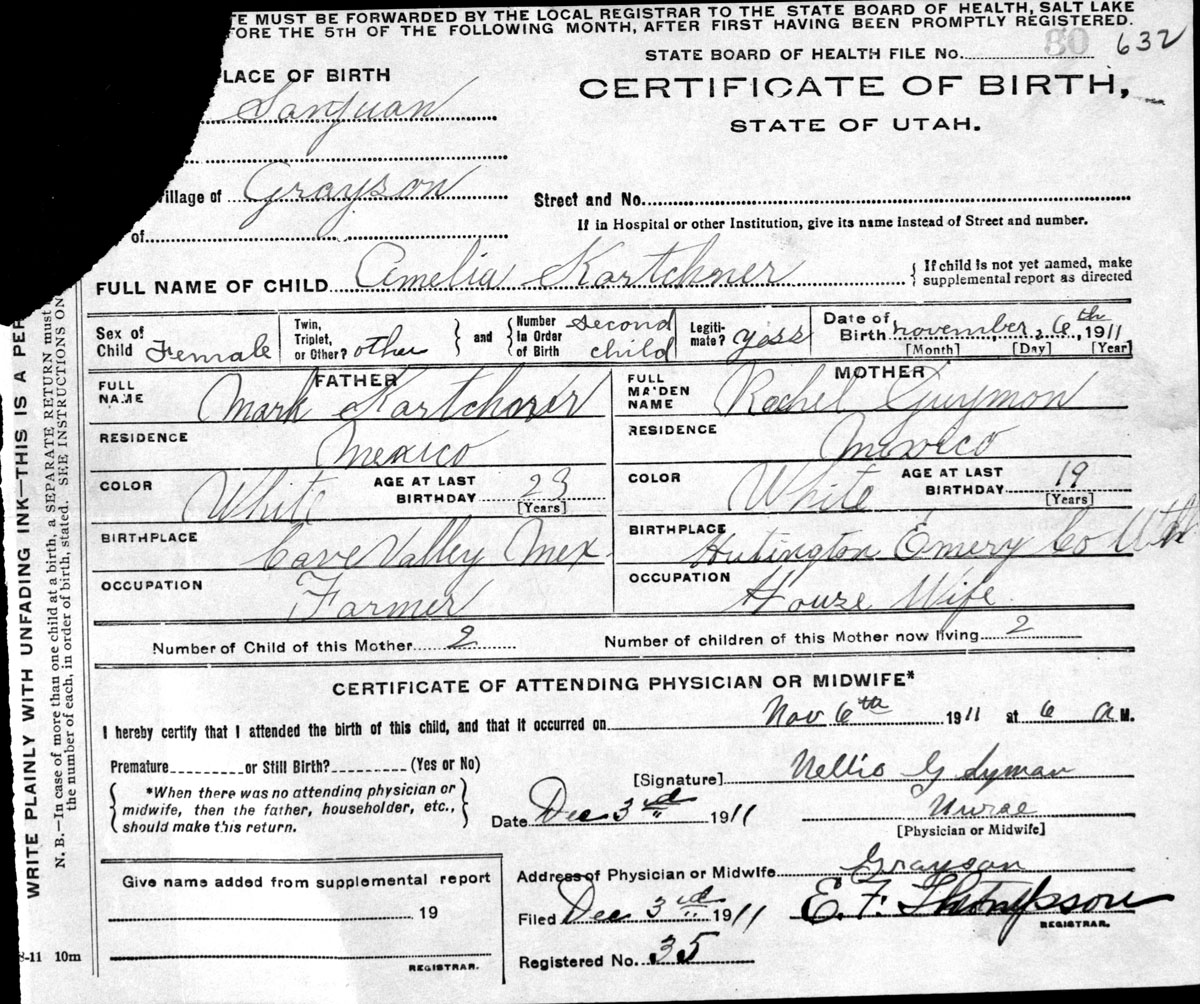 TE MUST BE FORWARDED BY THE LOCAL REGISTRAR TO THE STATE BOARD OF HEALTH, SALT LAKE
FORE THE 5TH OF THE FOLLOWING MONTH, AFTER FIRST HAVING BEEN PROMPTLY REGISTERED.
STATE BOARD OF HEALTH FILE No. 80 632
PLACE OF BIRTH
CERTIFICATE OF BIRTH,
SanJuan
STATE OF UTAH.
Village of Grayson
Street and No.
of
If in Hospital or other Institution, give its name instead of Street and number.
FULL NAME OF CHILD Amelia Kartchner
{ If child is not yet named, make
supplemental report as directed
Sex of Child Female
Twin, Triplet, or Other? other } and { Number In Order of Birth second child
Legiti-mate? yiss
Date of Birth november, 6th, 1911
[Month] [Day] [Year]
FATHER
FULL NAME Mark Kartchner
MOTHER
FULL MAIDEN NAME Rachel Guymon
RESIDENCE Mexico
RESIDENCE Mexico
COLOR White AGE AT LAST BIRTHDAY 23 [Years]
COLOR White AGE AT LAST BIRTHDAY 19 [Years]
BIRTHPLACE Cave Valley Mex
BIRTHPLACE Hutington Emery Co Utah
OCCUPATION Farmer
OCCUPATION House Wife
Number of Child of this Mother 2
Number of children of this Mother now living 2
CERTIFICATE OF ATTENDING PHYSICIAN OR MIDWIFE*
I hereby certify that I attended the birth of this child, and that it occurred on Nov 6th 1911 at 6 a M.
Premature or Still Birth? (Yes or No)
{ *When there was no attending physician or
midwife, then the father, householder, etc.,
should make this return. }
[Signature] Nellie G Lyman
Date Dec 3rd 1911
Nurse
[Physician or Midwife]
Give name added from supplemental report
19
REGISTRAR.
Address of Physician or Midwife Grayson
Filed Dec 3rd 1911 E. F. Thompson
REGISTRAR.
Registered No. 35
8-11 10m
WRITE PLAINLY WITH UNFADING INK—THIS IS A PER
N. B.—In case of more than one child at birth, a SEPARATE RETURN must
the number of each, in order of birth, stated. SEE INSTRUCTIONS ON